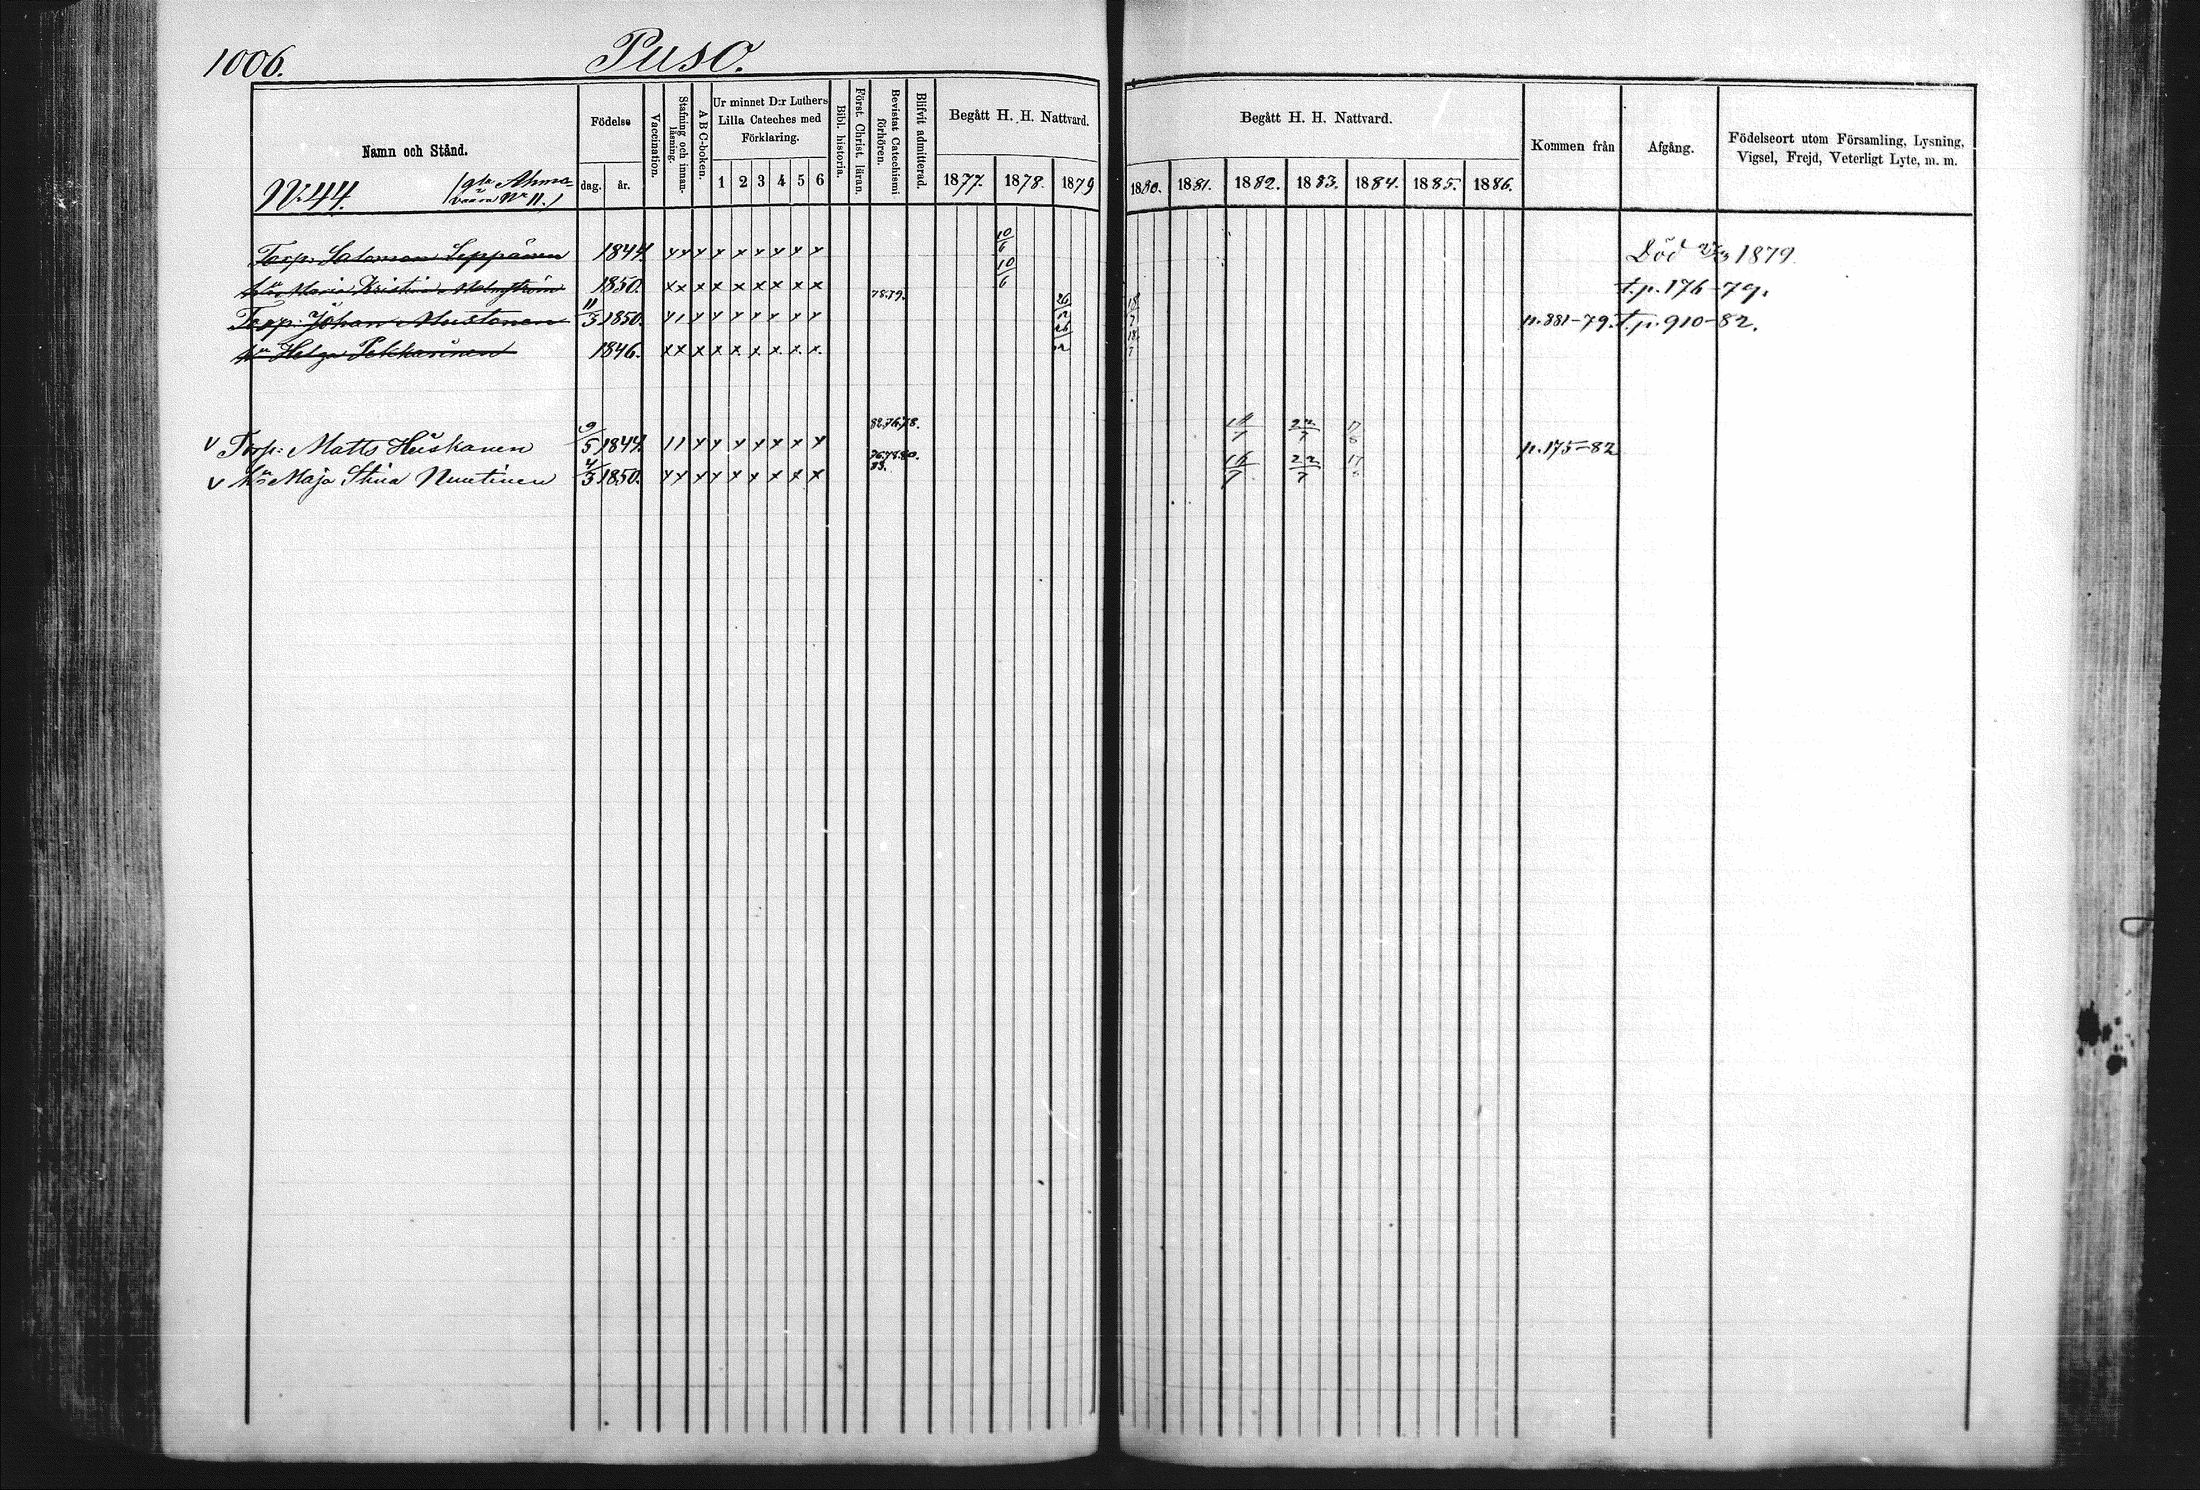 1006.
Puso.
Namn och Stånd.
Nº 44.
Födelse
dag. år.
Vaccination.
Stafning och innanläsning.
A B C-boken.
Ur minnet D:r Luthers Lilla Cateches med Förklaring.
1 2 3 4 5 6
Bibl. historia.
Först. Christ. läran.
Bevistat Catechismi förhören.
Blifvit admitterad.
Begått H. H. Nattvard.
1877. 1878. 1879
Begått H. H. Nattvard.
1880. 1881. 1882. 1883. 1884. 1885. 1886.
Kommen från
Afgång.
Födelseort utom Församling, Lysning, Vigsel, Frejd, Veterligt Lyte, m. m.
Torp: Salomon Seppänen 1844 x x x x x x x x x 10/6 Död 1879
Maria Kristina Malmström 1850. x x x x x x x x x 10/6 t.p. 176-79.
Torp: Johan Mustonen 11/3 1850. 78.79. p. 881-79. t.p. 910-82.
Helga Pekkarinen 1846. x x x x x x x x x
v Torp: Matts Huskanen 9/5 1844. 82.76.78. 22/7 p. 175-82
v Maja Stina Nuutinen 4/3 1850. x x x x x x x x x 76.78.80. 83. 16/7 22/7